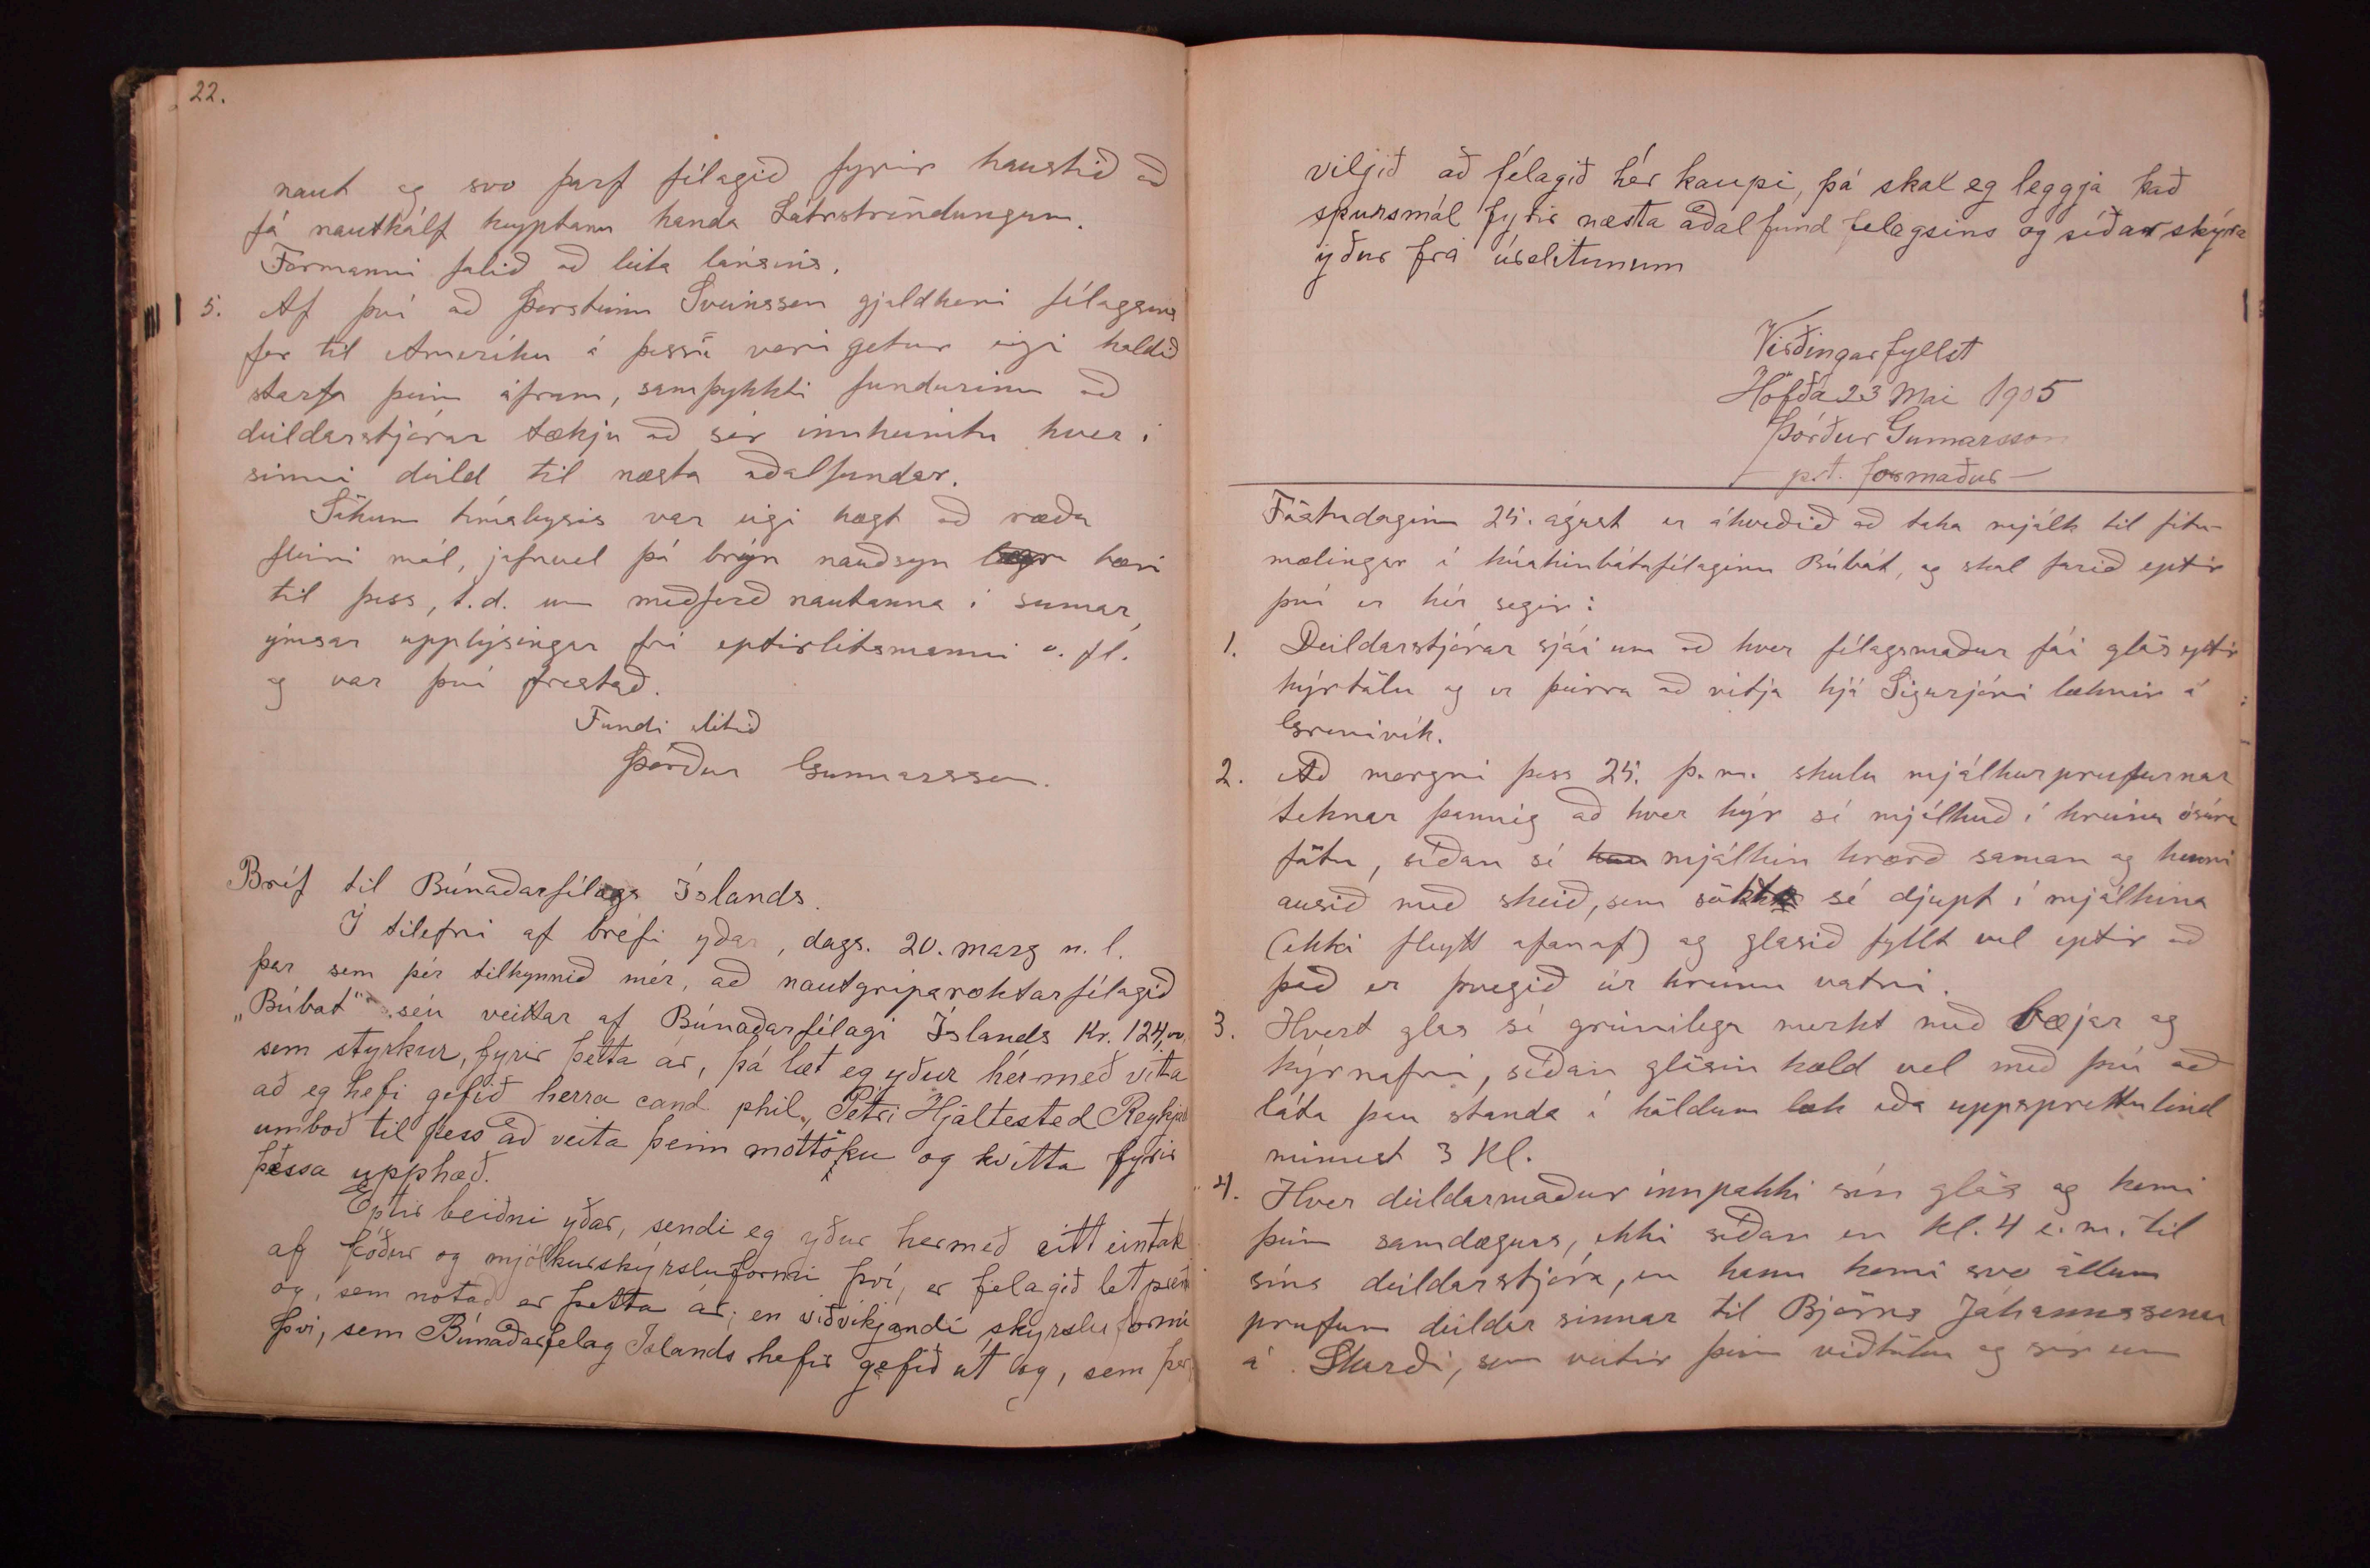 22.
naut og svo þarf félagið fyrir haustið að
fá nautkálf keyptann handa Látrstrendungum.
Formanni falið að leita lánsins.
5. Af því að Þorsteinn Sveinsson gjaldkeri félagsins
fer til Ameríku á þessu vori getur eigi haldið
starfa þeim áfram, samþykkti fundurinn að
deildarstjórar tækju að sér innheimtu hver í
sinni deild til næsta aðalfundar.
Sökum tímaleysis var eigi hægt að ræða
fleiri mál, jafnvel þó brýn nauðsyn bæri
til þess, t.d. um meðferð nautanna í sumar,
ýmsar upplýsingar frá eptirlitsmanni o. fl.
og var því frestað.
Fundi slitið
Þórður Gunnarsson.
Bréf til Búnaðarfélags Íslands.
Í tilefni af bréfi yðar, dags. 20. marz n. l.
þar sem þér tilkynnið mér, að nautgriparæktarfélagið
„Búbót" séu veittar af Búnaðarfélagi Íslands Kr. 124,00
sem styrkur, fyrir þetta ár, þá læt eg yður hérmeð vitta
að eg hefi gefið herra cand. phil., Pétri Hjaltested Reykjav
umboð til þess að veita þeim móttöku og kvitta fyrir
þessa upphæð.
Eptir beiðni yðar, sendi eg yður hermeð eitt eintak
af fóður og mjólkurskýrsluformi því, er fjelagið let prenta
og, sem notað er þetta ár; en viðvikjandi skýrslu formi
því, sem Búnaðarfelag Islands hefir gefið út og, sem þer
viljið að félagið hér kaupi, þá skal eg leggja það
spursmál fyrir næsta aðalfund felagsins og síðar skýra
yður frá úrslitunum
Virðingarfyllst
Höfða 23 Mai 1905
Þórður Gunnarsson
– p.t. formaður –
Föstudaginn 25. ágúst er ákveðið að taka mjólk til fitu-
mælingar í kúakinbótafélaginu Búbót, og skal farið eptir
því er hér segir:
1. Deildarstjórar sjái um að hver félagsmaður fái glös eptir
kýrtölu og er þeirra að vitja hjá Sigurjóni læknir á
Grenivík.
2. Að morgni þess 25. þ.m. skulu mjólkurprufurnar
teknar þannig að hver kýr sé mjólkuð í hreina ósúra
fötu, síðan sé mjólkin hrærð saman og henni
ausið með skeið, sem sökkt sé djupt í mjólkina
(ekki fleytt ofanaf) og glasið fyllt vel eptir að
það er þvegið úr hreinu vatni.
3. Hvert glas sé greinilega merkt með bæjar og
kýrnafni, síðan glösin kæld vel með því að
láta þau standa í köldum læk eða uppsprettulind
minnst 3 Kl.
4. Hver deildarmaður innpakki sín glös og komi
þeim samdægurs, ekki síðar en Kl. 4 e.m. til
síns deildarstjóra, en hann komi svo öllum
prufum deildar sinnar til Björns Jóhannssonar
á Skarði, sem veitir þeim viðtöku og sér um